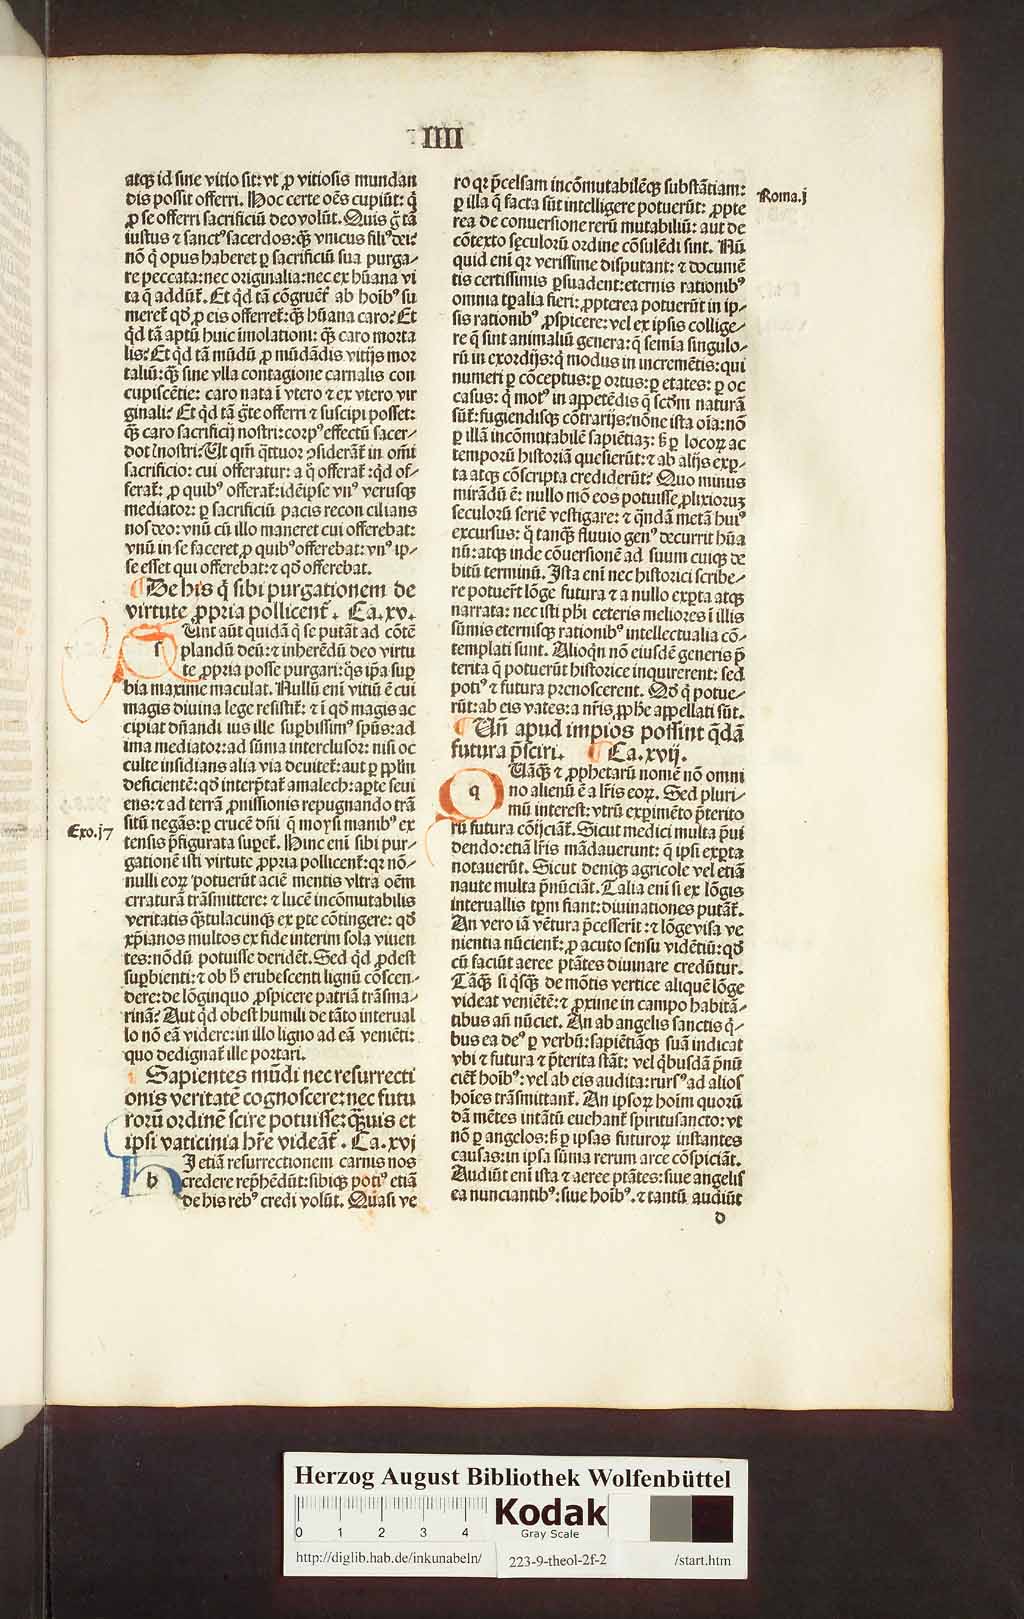 IIII
atqꝫ id sine vitio sit: vt ꝓ vitiosis mundan
dis possit offerri. Hoc certe oēs cupiūt: q̇
ꝓ se offerri sacrificiū deo volūt. Quis g̊ tā
iustus ⁊ sanctꝰ sacerdos: qꝫ vnicus filiꝰ dei?
nō q̇ opus haberet ꝑ sacrificiū sua purga⸗
re peccata: nec originalia: nec ex hūana vi
ta q̄ addūt̄. Et qd̛ tā cōgruēt̄ ab hoībꝰ su
meret̄ qd̛ ꝓ eis offerret̄: qꝫ hūana caro? Et
qd̛ tā aptū huic īmolationi: qꝫ caro morta
lis? Et qd̛ tā mūdū ꝓ mūdādis vitijs mor
taliū: qꝫ sine vlla contagione carnalis con
cupiscētie: caro nata ī vtero ⁊ ex vtero vir
ginali? Et qd̛ tā g̈te offerri ⁊ suscipi posset:
qꝫ caro sacrificij nostri: corpꝰ effectū sacer⸗
dotl nostri? Ut qm̄ q̈ttuor ꝯsiderāt̄ in om̄i
sacrificio: cui offeratur: a q̊ offerat̄: qd̛ of⸗
ferat̄: ꝓ quibꝰ offerat̄: idēipse vnꝰ verusqꝫ
mediator: ꝑ sacrificiū pacis recon cilians
nos deo: vnū cū illo maneret cui offerebat:
vnū in se faceret ꝓ quibꝰ offerebat: vnꝰ ip⸗
se esset qui offerebat: ⁊ qd̛ offerebat.
¶ De his q̇ sibi purgationem de
virtute ꝓpria pollicent̄. Ca.xv.
s Unt aūt quidā q̇ se putāt ad cōtē
plandū deū: ⁊ inherēdū deo virtu
te ꝓpria posse purgari: q̊s ip̄a suꝑ
bia maxime maculat. Nullū enī vitiū ē cui
magis diuina lege resistit̄: ⁊ ī qd̛ magis ac
cipiat dn̄andi ius ille suꝑbissimꝰ sp̄us: ad
ima mediator: ad sūma interclusor: nisi oc
culte insidians alia via deuitet̄: aut ꝑ pplm̄
deficientē: qd̛ interp̄tat̄ amalech: aꝑte seui
ens: ⁊ ad terrā ꝓmissionis repugnando trā
sitū negās: ꝑ crucē dn̄i q̄ moysi manibꝰ ex
tensis p̄figurata suꝑet̄. Hinc enī sibi pur⸗
gationē isti virtute ꝓpria pollicent̄: qꝛ nō⸗
nulli eoꝝ potuerūt aciē mentis vltra oēm
crraturā trāsmittere: ⁊ lucē incōmutabilis
veritatis qꝫtulacunqꝫ ex ꝑte cōtingere: qd̛
xp̄ianos multos ex fide interim sola viuen
tes: nōdū potuisse deridēt. Sed qd̛ ꝓdest
suꝑbienti: ⁊ ob h̊ erubescenti lignū cōscen⸗
dere: de lōginquo ꝓspicere patriā trāsma⸗
rinā? Aut qd̛ obest humili de tāto interual
lo nō eā videre: in illo ligno ad eā veniēti:
quo dedignat̄ ille portari.
¶ Sapientes mūdi nec resurrecti
onis veritatē cognoscere: nec futu
rorū ordinē scire potuisse: qꝫuis et
ipsi vaticinia hr̄e videāt̄. Ca.xvj
h J etiā resurrectionem carnis nos
credere rep̄hēdūt: sibiqꝫ potiꝰ etiā
de his rebꝰ credi volūt. Quasi ve
Exo.j7
ro qꝛ p̄celsam incōmutabilēqꝫ substātiam:
ꝑ illa q̄ facta sūt intelligere potuerūt: ꝓpte
rea de conuersione rerū mutabiliū: aut de
cōtexto sęculorū ordine cōsulēdi sint. Nū
quid enī qꝛ verissime disputant: ⁊ documē
tis certissimis ꝑsuadent: eternis rationibꝰ
omnia tꝑalia fieri: ꝓpterea potuerūt in ip⸗
sis rationibꝰ ꝓspicere: vel ex ipsis collige⸗
re q̄ sint animaliū genera: q̄ semia singulo⸗
rū in exordijs: q̇ modus in incremētis: qui
numeri ꝑ cōceptus: ꝑ ortus: ꝑ etates: ꝑ oc
casus: q̇ motꝰ in appetēdis q̄ scd̛m naturā
sūt: fugiendisqꝫ cōtrarijs: nōne ista oīa: nō
ꝑ illā incōmutabilē sapiētiaꝫ: sꝫ ꝑ locoꝝ ac
temporū historiā quesierūt: ⁊ ab alijs exꝑ⸗
ta atqꝫ cōscripta crediderūt? Quo minus
mirādū ē: nullo mō eos potuisse ꝓlixioruꝫ
seculorū seriē vestigare: ⁊ q̈ndā metā huiꝰ
excursus: q̊ tanqꝫ fluuio genꝰ decurrit hūa
nū: atqꝫ inde cōuersionē ad suum cuiqꝫ de
bitū terminū. Ista enī nec historici scribe⸗
re potuer̄t lōge futura ⁊ a nullo exꝑta atqꝫ
narrata: nec isti ph̄i ceteris meliores ī illis
sūmis eternisqꝫ rationibꝰ intellectualia cō⸗
templati sunt. Alioqn̄ nō eiusdē generis p̄
terita q̄ potuerūt historice inquirerent: sed
potiꝰ ⁊ futura prenoscerent. Qd̛ q̇ potue⸗
rūt: ab eis vates: a nr̄is ꝓph̄e appellati sūt.
¶ Un̄ apud impios possint q̇dā
futura p̄sciri. ¶ Ca.xvij.
q Uāqꝫ ⁊ ꝓphetarū nomē nō omni
no alienū ē a lr̄is eoꝝ. Sed pluri⸗
mū interest: vtrū exꝑimēto p̄terito
rū futura cōijciāt̄. Sicut medici multa p̄ui
dendo: etiā lr̄is mādauerunt: q̄ ipsi exꝑta
notauerūt. Sicut deniqꝫ agricole vel etiā
naute multa p̄nūciāt. Talia enī si ex lōgis
interuallis tꝑm fiant: diuinationes putāt̄.
An vero iā vētura p̄cesserit: ⁊ lōge visa ve
nientia nūcient̄: ꝓ acuto sensu vidētiū: qd̛
cū faciūt aeree ptātes diuinare credūtur.
Tāqꝫ si q̇sqꝫ de mōtis vertice aliquē lōge
videat veniētē: ⁊ ꝓxime in campo habitā⸗
tibus an̄ nūciet. An ab angelis sanctis q̇⸗
bus ea deꝰ ꝑ verbū: sapiētiāqꝫ suā indicat
vbi ⁊ futura ⁊ p̄terita stāt: vel q̇busdā p̄nū
ciēt̄ hoībꝰ: vel ab eis audita: rursꝰ ad alios
hoīes trāsmittant̄. An ipsoꝝ hoīm quorū
dā mētes intātū euehant̄ spiritusancto: vt
nō ꝑ angelos: sꝫ ꝑ ipsas futuroꝝ instantes
causas: in ipsa sūma rerum arce cōspiciāt.
Audiūt enī ista ⁊ aeree ptātes: siue angelis
ea nunciantibꝰ: siue hoībꝰ. ⁊ tantū audiūt
Roma.j
d
Herzog August Bibliothek Wolfenbüttel
0 1 2 3 4
Kodak
Gray Scale
http://diglib.hab.de/inkunabeln/ 223-9-theol-2f-2 /start.htm